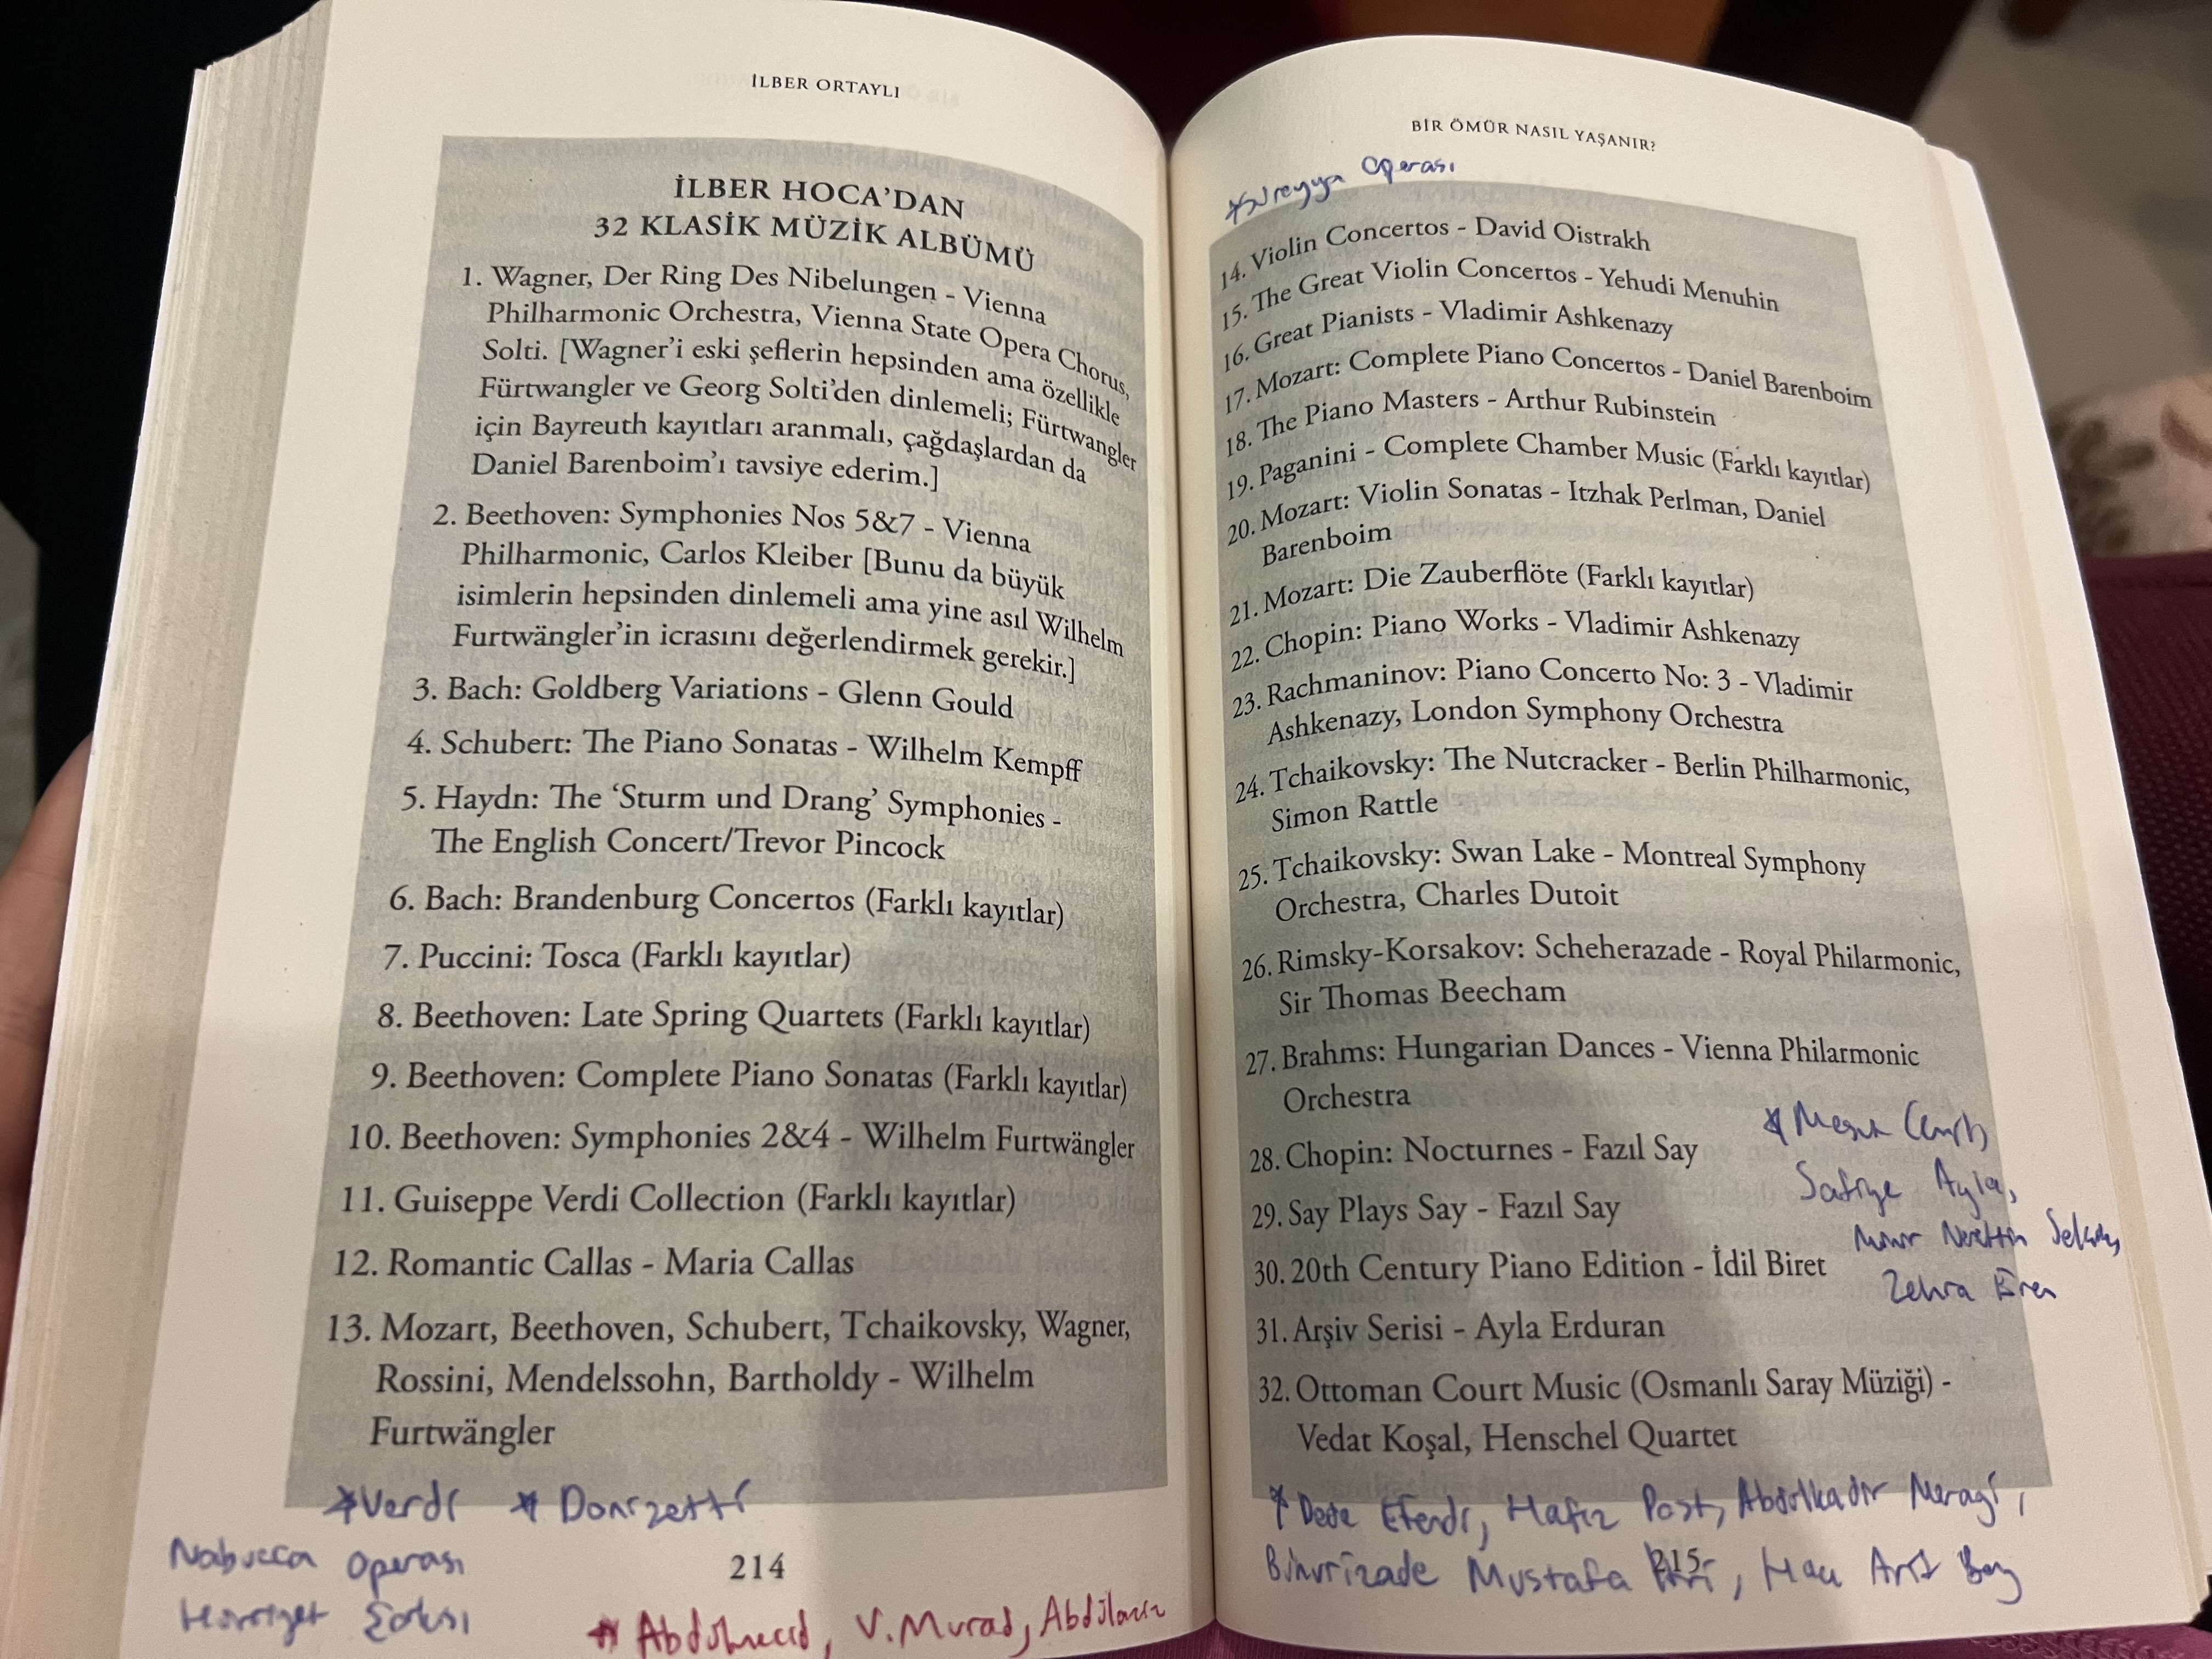 İLBER ORTAYLI
İLBER HOCA'DAN
32 KLASİK MÜZİK ALBÜMÜ
1. Wagner, Der Ring Des Nibelungen - Vienna
Philharmonic Orchestra, Vienna State Opera Chorus,
Solti. [Wagner'i eski şeflerin hepsinden ama özellikle
Fürtwangler ve Georg Solti'den dinlemeli; Fürtwangler
için Bayreuth kayıtları aranmalı, çağdaşlardan da
Daniel Barenboim'ı tavsiye ederim.]
2. Beethoven: Symphonies Nos 5&7 - Vienna
Philharmonic, Carlos Kleiber [Bunu da büyük
isimlerin hepsinden dinlemeli ama yine asıl Wilhelm
Furtwängler'in icrasını değerlendirmek gerekir.]
3. Bach: Goldberg Variations - Glenn Gould
4. Schubert: The Piano Sonatas - Wilhelm Kempff
5. Haydn: The 'Sturm und Drang' Symphonies -
The English Concert/Trevor Pincock
6. Bach: Brandenburg Concertos (Farklı kayıtlar)
7. Puccini: Tosca (Farklı kayıtlar)
8. Beethoven: Late Spring Quartets (Farklı kayıtlar)
9. Beethoven: Complete Piano Sonatas (Farklı kayıtlar)
10. Beethoven: Symphonies 2&4 - Wilhelm Furtwängler
11. Guiseppe Verdi Collection (Farklı kayıtlar)
12. Romantic Callas - Maria Callas
13. Mozart, Beethoven, Schubert, Tchaikovsky, Wagner,
Rossini, Mendelssohn, Bartholdy - Wilhelm
Furtwängler
*Verdi * Donizetti
Nabucca Operası
Hürriyet Şarkısı
214
* Abdülmecid, V. Murad, Abdülaziz
BİR ÖMÜR NASIL YAŞANIR?
*Süreyya Operası
14. Violin Concertos - David Oistrakh
15. The Great Violin Concertos - Yehudi Menuhin
16. Great Pianists - Vladimir Ashkenazy
17. Mozart: Complete Piano Concertos - Daniel Barenboim
18. The Piano Masters - Arthur Rubinstein
19. Paganini - Complete Chamber Music (Farklı kayıtlar)
20. Mozart: Violin Sonatas - Itzhak Perlman, Daniel
Barenboim
21. Mozart: Die Zauberflöte (Farklı kayıtlar)
22. Chopin: Piano Works - Vladimir Ashkenazy
23. Rachmaninov: Piano Concerto No: 3 - Vladimir
Ashkenazy, London Symphony Orchestra
24. Tchaikovsky: The Nutcracker - Berlin Philharmonic,
Simon Rattle
25. Tchaikovsky: Swan Lake - Montreal Symphony
Orchestra, Charles Dutoit
26. Rimsky-Korsakov: Scheherazade - Royal Philarmonic,
Sir Thomas Beecham
27. Brahms: Hungarian Dances - Vienna Philarmonic
Orchestra
28. Chopin: Nocturnes - Fazıl Say
29. Say Plays Say - Fazıl Say
30. 20th Century Piano Edition - İdil Biret
31. Arşiv Serisi - Ayla Erduran
32. Ottoman Court Music (Osmanlı Saray Müziği) -
Vedat Koşal, Henschel Quartet
* Mesut Cemil,
Safiye Ayla,
Münir Nurettin Selçuk,
Zehra Eren
* Dede Efendi, Hafız Post, Abdülkadir Meragi,
Buhurizade Mustafa Itri, Hacı Arif Bey
215